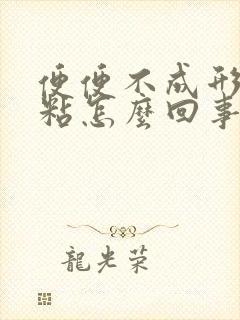 便便不成形
粘怎麼回事
龍光榮